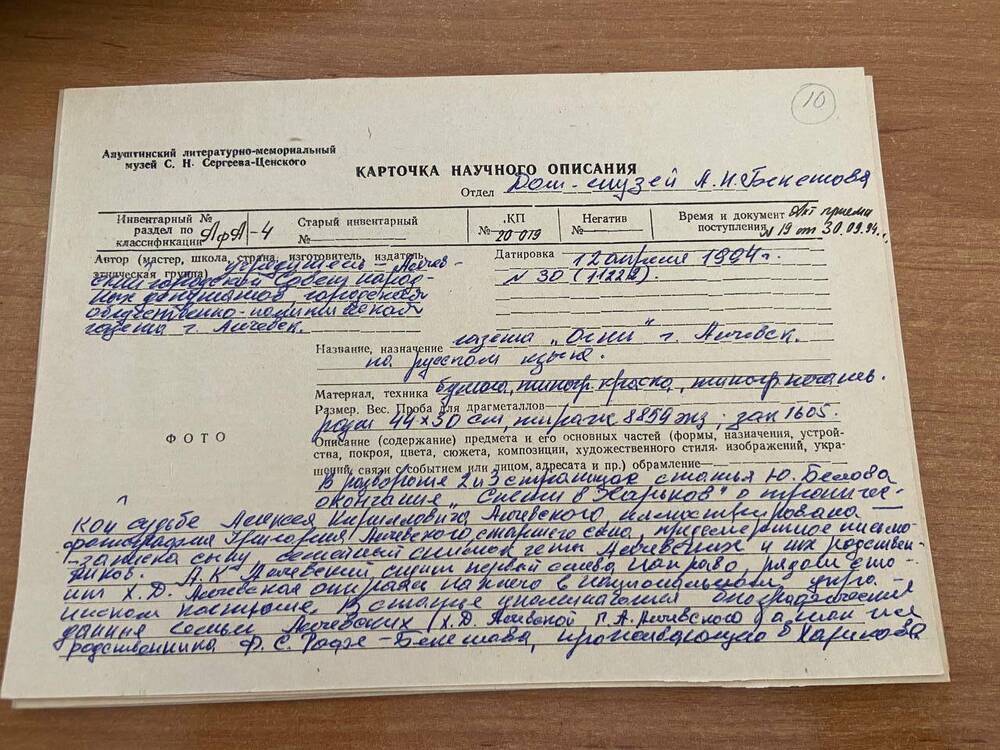 10
Алуштинский литературно-мемориальный
музей С. Н. Сергеева-Ценского
КАРТОЧКА НАУЧНОГО ОПИСАНИЯ
Отдел Дом-музей А.Н. Бекетова
Инвентарный №
раздел по
классификации АфА-4
Старый инвентарный
№
КП
№ 20-019
Негатив
№
Время и документ Акт приема
поступления № 19 от 30.09.94 г.
Автор (мастер, школа, страна, изготовитель, издатель,
этническая группа) учредитель – Алчев-
ский городской Совет народ-
ных депутатов, городская
общественно-политическая
газета г. Алчевск.
Датировка 12 апреля 1994 г.
№ 30 (11222)
Название, назначение газета „Огни" г. Алчевск.
на русском языке.
Материал, техника бумага, типогр. краска, типогр. печать.
Размер. Вес. Проба для драгметаллов
разм 44×30 см, тираж 8859 экз; зак 1605.
ФОТО
Описание (содержание) предмета и его основных частей (формы, назначения, устрой-
ства, покроя, цвета, сюжета, композиции, художественного стиля, изображений, укра-
шений, связи с событием или лицом, адресата и пр.) обрамление
В развороте 2 и 3 страницах статья Ю. Белова
окончания „ в Харьков" о трагичес-
кой судьбе Алексея Кирилловича Алчевского иллюстрирована
фотография Григория Алчевского старшего сына, предсмертное письмо-
записка сыну семейный снимок четы Алчевских и их родствен-
ников. А.К Алчевский сидит первый слева направо, рядом сто-
ит Х.Д. Алчевская в национальном укра-
инском костюме. В статье упоминаются биографические
данные семьи Алчевских (Х.Д. Алчевской Г.А. Алчевского а
родственника Ф.С. - Бекетова, в Харькове